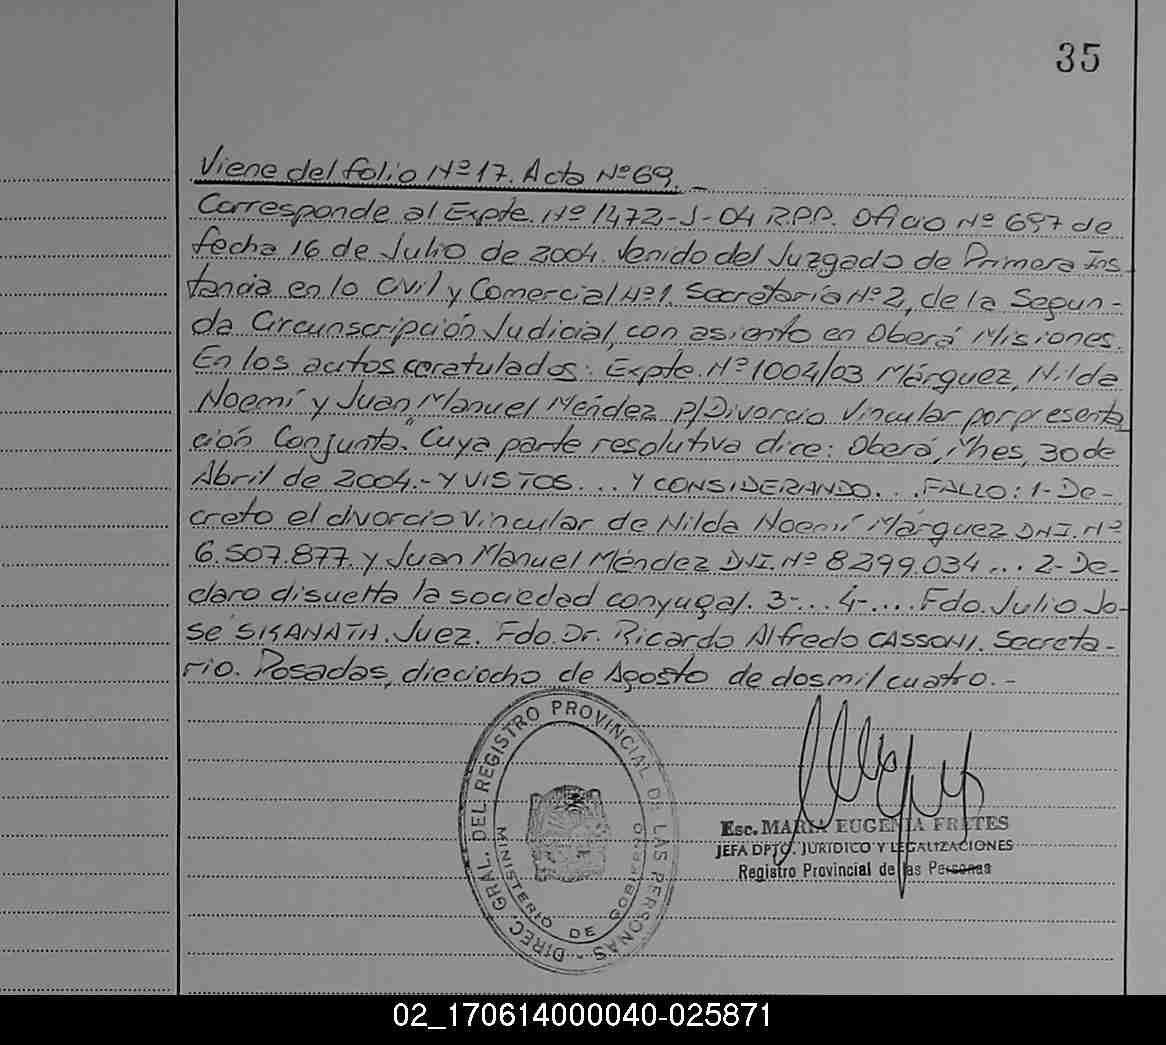 35
Viene del folio Nº 17. Acta Nº 69.-
Corresponde al Expte. Nº 1472-J-04 R.P.P. Oficio Nº 697 de
fecha 16 de Julio de 2004. Venido del Juzgado de Primera Ins-
tancia en lo Civil y Comercial Nº 1 Secretaría Nº 2, de la Segun-
da Circunscripción Judicial, con asiento en Oberá Misiones.
En los autos caratulados: Expte. Nº 1004/03 Márquez, Nilda
Noemí y Juan Manuel Méndez P/Divorcio Vincular por presenta
ción Conjunta". Cuya parte resolutiva dice: Oberá, Mnes, 30 de
Abril de 2004.- Y VISTOS... Y CONSIDERANDO... FALLO: 1- De-
creto el divorcio vincular de Nilda Noemí Márquez DNI. Nº
6.507.877 y Juan Manuel Méndez DNI. Nº 8.299.034... 2- De-
claro disuelta la sociedad conyugal. 3-... 4-.... Fdo. Julio Jo-
sé Juez. Fdo. Dr. Ricardo Alfredo CASSONI. Secreta-
rio. Posadas, dieciocho de Agosto de dosmil cuatro.-
DIREC. GRAL. DEL REGISTRO PROVINCIAL DE LAS PERSONAS
MINISTERIO DE GOBIERNO
Esc. MARIA EUGENIA FRETES
JEFA DPTO. JURIDICO Y LEGALIZACIONES
Registro Provincial de las Personas
02_170614000040-025871